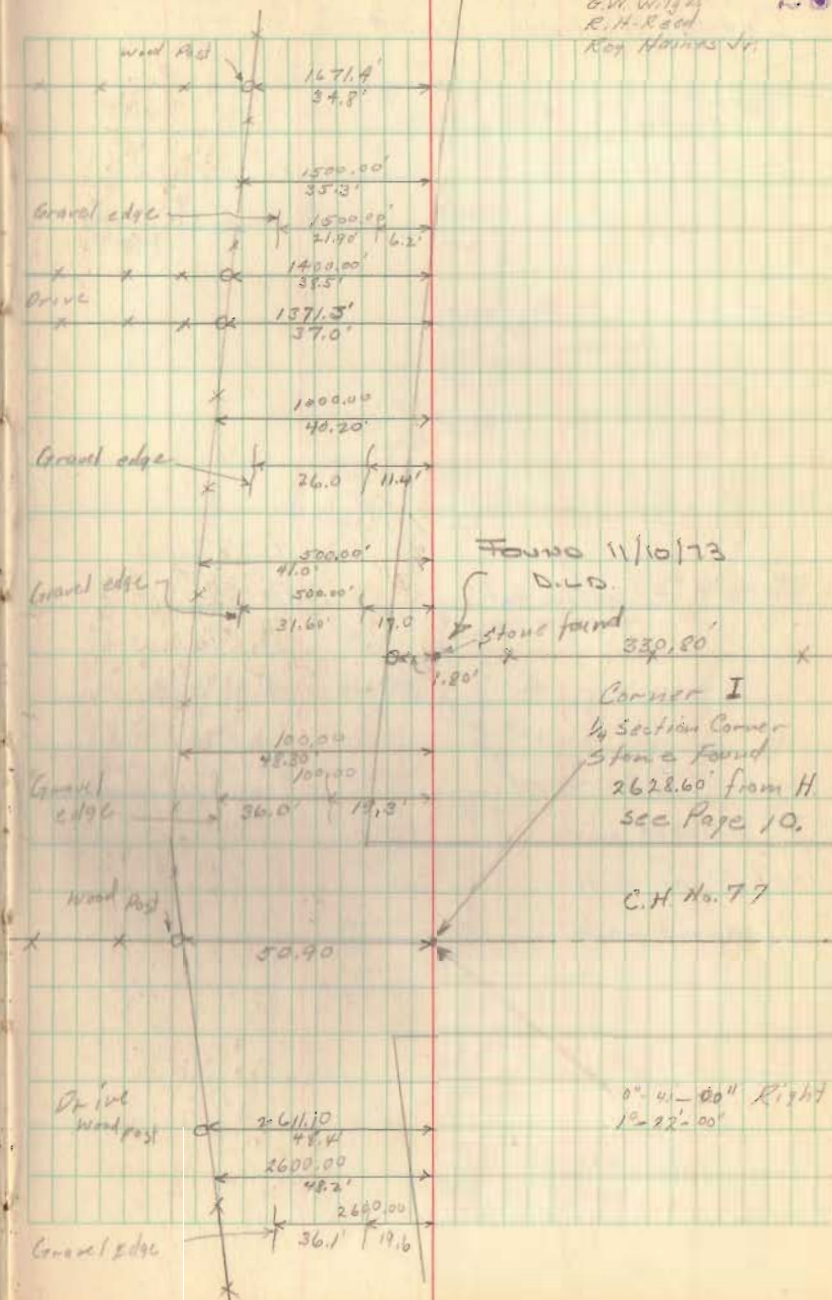 G.W. Wilgus
R.H. Reed
Roy Haines Jr.
Wood Post
1671.4'
34.8'
1500.00'
35.3'
Gravel edge
1500.00'
21.90' 6.2'
1400.00'
38.5'
Drive
1371.3'
37.0'
1000.00
40.20'
Gravel edge
26.0 11.4'
500.00'
41.0'
Found 11/10/73
D.L.D.
Gravel edge
500.00'
31.60' 17.0
Stone found
330.80'
1.80'
Corner I
1/4 Section Corner
Stone Found
2628.60' from H
See Page 10.
100.00
48.30'
100.00
Gravel edge
36.0' 19.3'
C.H. No. 77
Wood Post
50.90
0°-41'-00" Right
1°-22'-00"
Drive
Wood post
2611.10
48.4'
2600.00
48.2'
2600.00
Gravel Edge
36.1' 19.6